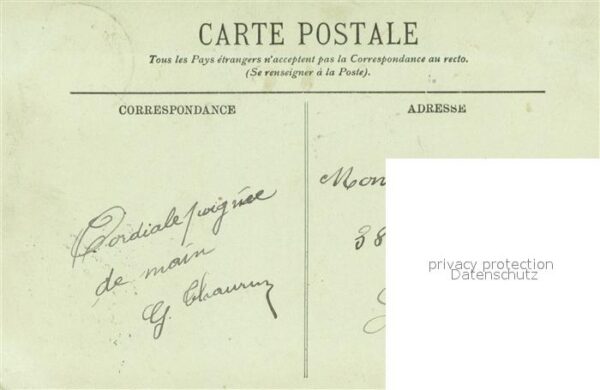 CARTE POSTALE
Tous les Pays étrangers n'acceptent pas la Correspondance au recto.
(Se renseigner à la Poste).
CORRESPONDANCE
Cordiale poignée
de main
G.
ADRESSE
Mon
38
privacy protection
Datenschutz